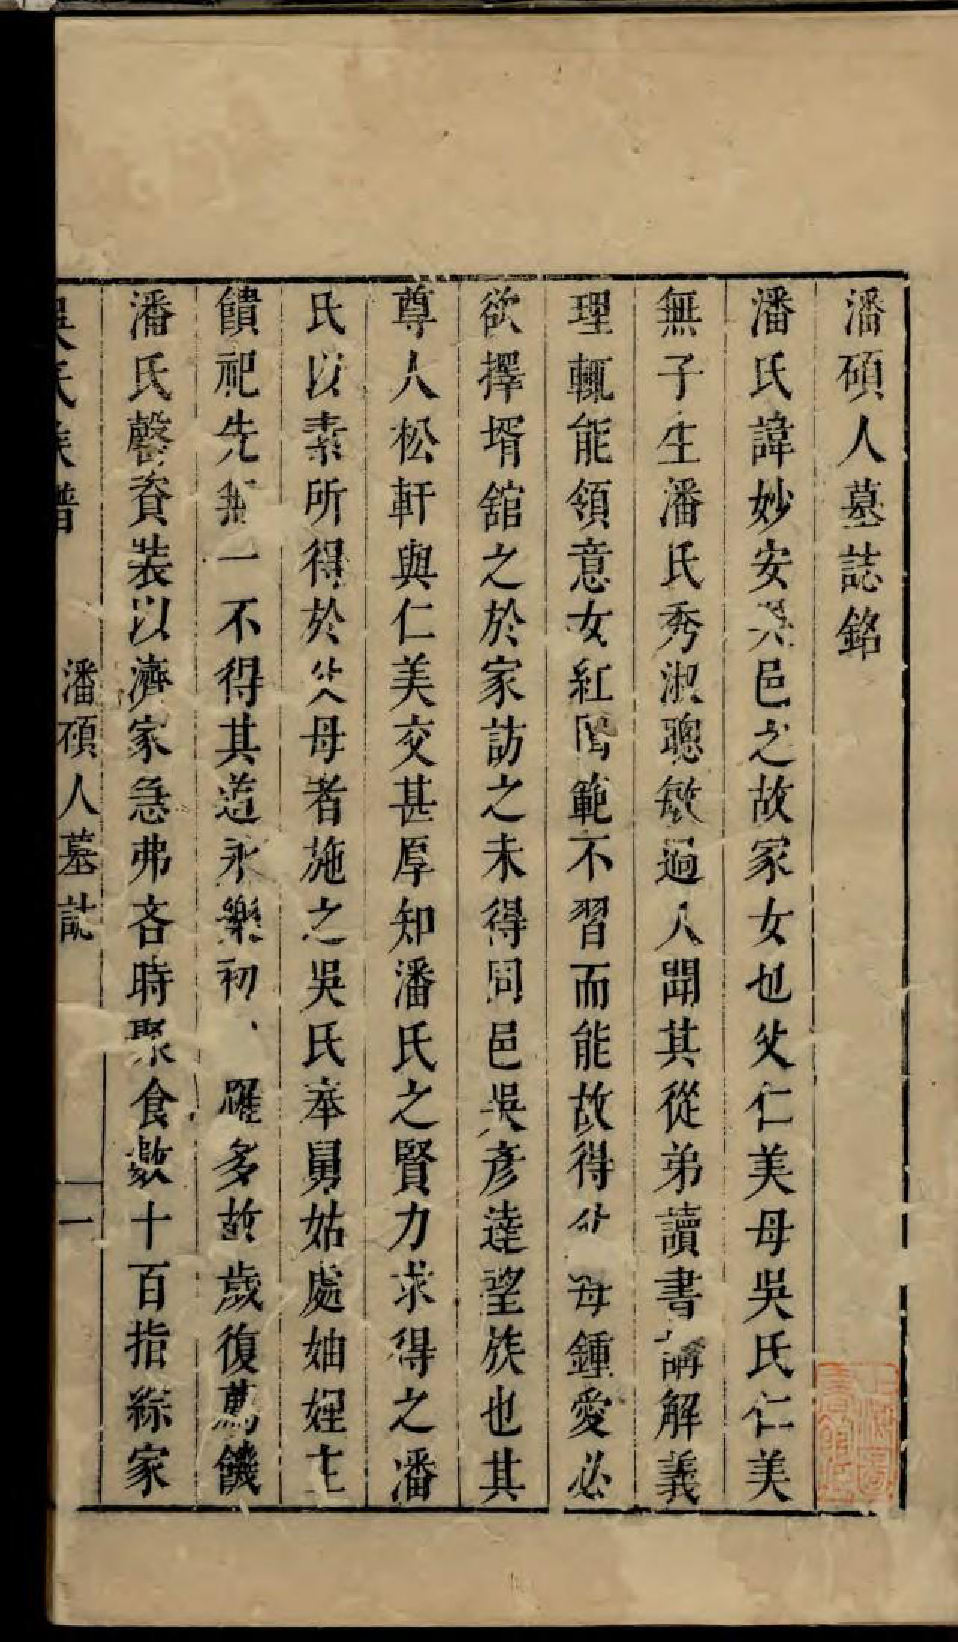 潘碩人墓誌銘
潘氏諱妙安邑之故家女也父仁美母吳氏仁美
無子生潘氏秀淑聰敏過人聞其從弟讀書講解義
理輒能領意女紅閫範不習而能故得父母鍾愛必
欲擇壻舘之於家訪之未得同邑吳彥達望族也其
尊人松軒與仁美交甚厚知潘氏之賢力求得之潘
氏以素所得於父母者施之吳氏奉舅姑處妯娌主
饋祀先無一不得其道永樂初罹多故歲復薦饑
潘氏罄資装以濟家急弗吝時聚食數十百指綜家
吳氏族譜 潘碩人墓誌 一